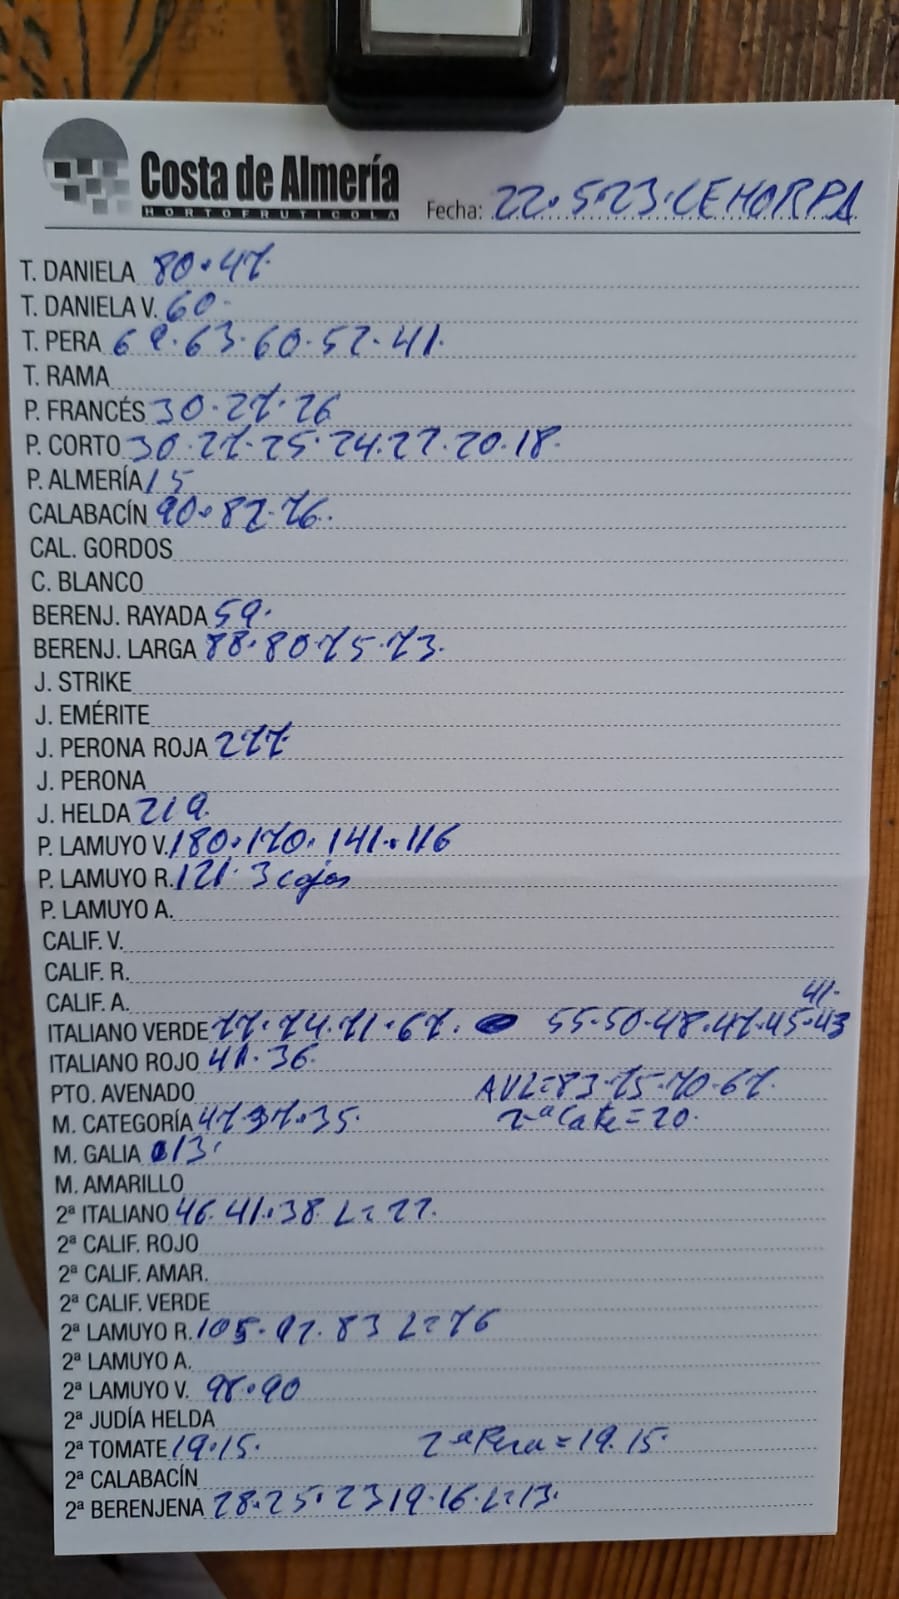 Costa de Almería
HORTOFRUTICOLA
Fecha: 22.5.23.CEHORPA
T. DANIELA 80.47.
T. DANIELA V. 60.
T. PERA 69.63.60.52.41.
T. RAMA
P. FRANCÉS 30.27.26
P. CORTO 30.27.25.24.22.20.18.
P. ALMERÍA 15
CALABACÍN 90.82.76.
CAL. GORDOS
C. BLANCO
BERENJ. RAYADA 59.
BERENJ. LARGA 88.80.75.73.
J. STRIKE
J. EMÉRITE
J. PERONA ROJA 277
J. PERONA
J. HELDA 219.
P. LAMUYO V. 180.170.141.116
P. LAMUYO R. 121.3 cajas
P. LAMUYO A.
CALIF. V.
CALIF. R.
CALIF. A.
41.
ITALIANO VERDE 77.74.71.67. 55.50.48.47.45.43
ITALIANO ROJO 41.36.
PTO. AVENADO AVE=83.75.70.67.
M. CATEGORÍA 47.37.35. 2ª Cate=20.
M. GALIA 13.
M. AMARILLO
2ª ITALIANO 46.41.38 L=22.
2ª CALIF. ROJO
2ª CALIF. AMAR.
2ª CALIF. VERDE
2ª LAMUYO R. 105.92.83 L=76
2ª LAMUYO A.
2ª LAMUYO V. 98.90
2ª JUDÍA HELDA
2ª TOMATE 19.15. 2ª Pera=19.15.
2ª CALABACÍN
2ª BERENJENA 28.25.23 19.16.L=13.